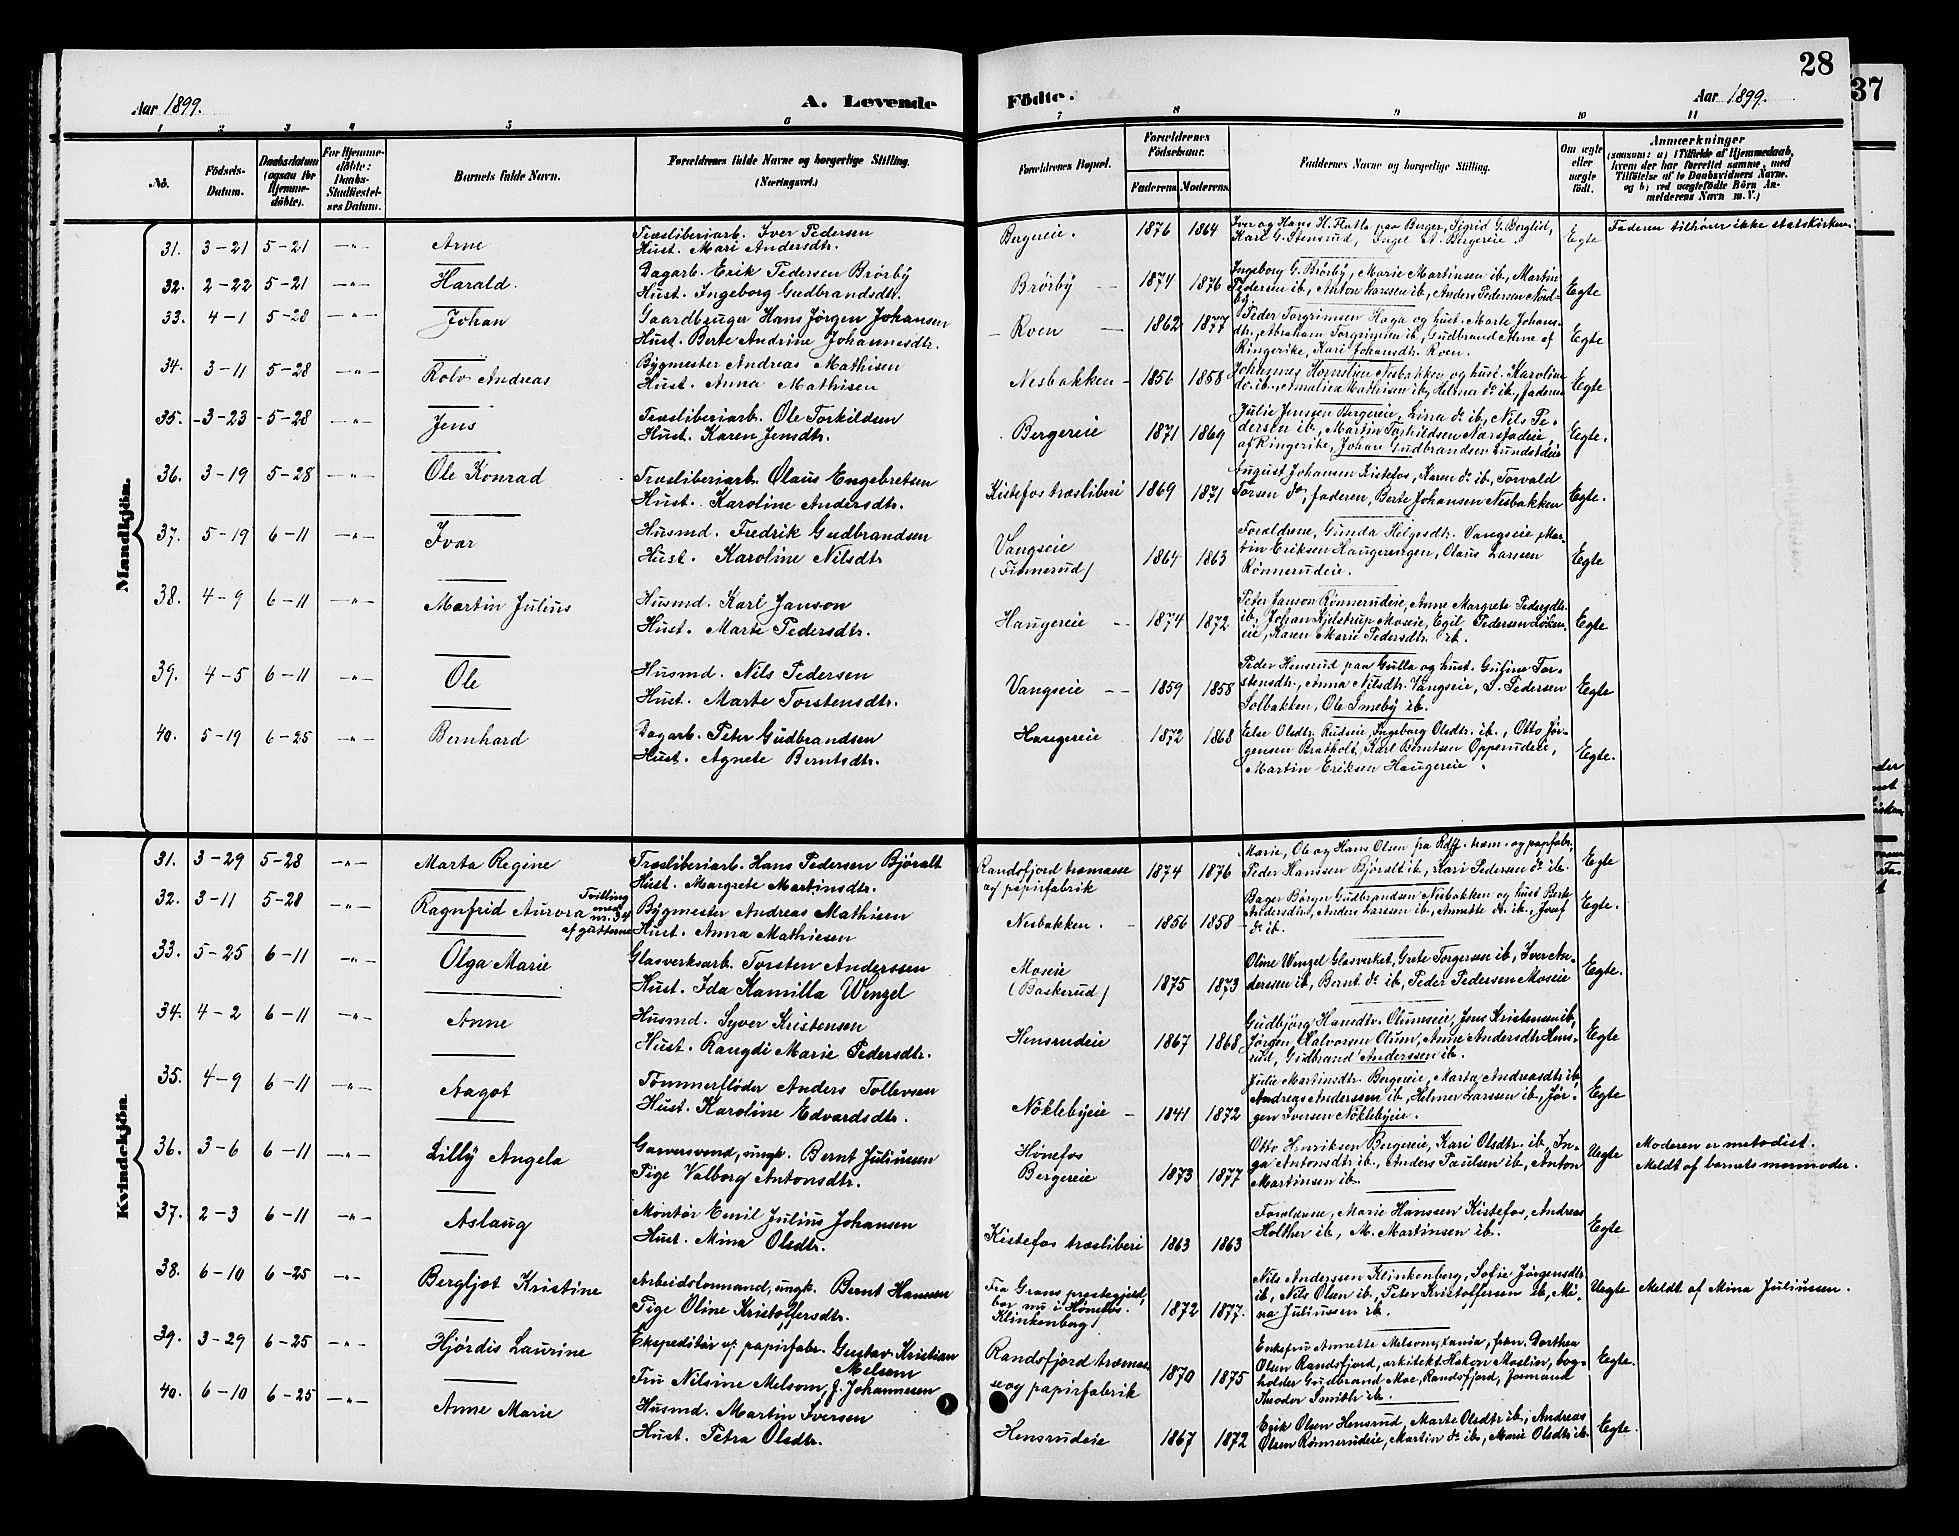 28
37
Aar 1899.
A. Levende
Födte.
Aar 1899.
1 2 3 4 5 6 7 8 9 10 11
No.
Födsels-Datum.
Daabsdatum (ogsaa for Hjemme-döbte).
For Hjemme-döbte: Daabs-Stadfæstel-ses Datum.
Barnets fulde Navn.
Forældrenes fulde Navne og borgerlige Stilling. (Næringsvei.)
Forældrenes Bopæl.
Forældrenes Födselsaar.
Faderens. Moderens.
Faddernes Navne og borgerlige Stilling.
Om ægte eller uægte födt.
Anmærkninger
(saasom: a) i Tilfælde af Hjemmedaab,
hvem der har forrettet samme, med
Tilföielse af to Daabsvidners Navne.
og b) ved uægtefödte Börn An-
melderens Navn m. V.)
Mandkjön.
31. 3-21 5-21 —"— Arne
Træsliberiarb. Iver Pedersen
Hust. Mari Andersdtr.
Bergereie. 1876 1864
Iver og Hans H. Flatla paa Berger, Sigrid G. Berglid,
Karl G. Stensrud, Ingel Bergereie.
Egte
Faderen tilhører ikke statskirken
32. 2-22 5-21 —"— Harald.
Dagarb. Erik Pedersen Brörby
Hust. Ingeborg Gudbrandsdtr.
Brörby 1874 1876
Ingeborg G. Brørby, Marie Martinsen ib., Martin
Pedersen ib., Anton Larssen ib., Anders Pedersen Nord-
by.
Egte
33. 4-1 5-28 —"— Johan
Gaardbruger Hans Jørgen Johansen
Hust. Berte Andrine Johannesdtr.
Roen 1862 1877
Peder Torgrimsen Haga og hust. Marte Johans-
dtr., Abraham Torgrimsen ib., Gudbrand Arne af
Ringerike, Kari Johansdtr. Roen.
Egte
34. 3-11 5-28 —"— Rolv Andreas
Bygmester Andreas Mathisen
Hust. Anna Mathisen
Nesbakken 1856 1858
Johannes Hornslien Nesbakken og hust. Karoline
do ib., Amalica Mathisen ib., Helmer do ib., Faderen
Egte
35. 3-23 5-28 —"— Jens
Træsliberiarb. Ole Torkildsen
Hust. Karen Jensdtr.
Bergereie 1871 1869
Julie Jenssen Bergereie, Lina do ib., Nils Pe-
dersen ib., Martin Torkildsen
af Ringerike, Johan Gudbrandsen Lundstadeie
Egte.
36. 3-19 5-28 —"— Ole Konrad
Træsliberiarb. Olaus Engebretsen
Hust. Karoline Andersdtr.
Kistefos træsliberi 1869 1871
August Johansen Kistefos, Karen do ib., Torvald
Torsen do, Faderen, Berte Johansen Nesbakken
Egte.
37. 5-19 6-11 —"— Ivar
Husmd. Fredrik Gudbrandsen
Hust. Karoline Nilsdtr
Vangseie
(Finnerud)
1864 1863
Forældrene, Gunda Helgesdtr. Vangseie, Mar-
tin Eriksen Haugerengen, Olaus Larssen
Rönnerudeie.
Egte
38. 4-9 6-11 —"— Martin Julius
Husmd. Karl Janson
Hust. Marte Pedersdtr.
Haugereie 1874 1872
Peter Janson Rönnerudeie, Anne Margrete Pedersdtr.
ib., Johan Kjelstrup Moseie, Egil Pedersen Löken-
eie, Karen Marie Pedersdtr. ib.
Egte
39. 4-5 6-11 —"— Ole
Husmd. Nils Pedersen
Hust. Marte Torstensdtr.
Vangseie 1859 1858
Peder Hensrud paa Gulla og hust. Gufine Tor-
stensdtr., Anna Nilsdtr. Vangseie, S. Pedersen
Solbakken, Ole Smeby ib.
Egte
40. 5-19 6-25 —"— Bernhard
Dagarb. Peter Gudbrandsen
Hust. Agnete Berntsdtr.
Haugereie 1872 1868
Else Olsdtr. Rudeie, Ingeborg Olsdtr. ib., Otto Jör-
gensen Bratholt, Karl Berntsen Opperudeie,
Martin Eriksen Haugereie.
Egte.
Kvindekjön.
31. 3-29 5-28 —"— Marta Regine
Træsliberiarb. Hans Pedersen Björalt
Hust. Margrete Martinsdtr.
Randsfjord træmasse
og papirfabrik
1874 1876
Marie, Ole og Hans Olsen fra Rdfj. træm. og papfabr.,
Peder Hanssen Björalt ib., Kari Pedersen do ib.
Egte
32. 3-11 5-28 —"— Ragnfrid Aurora
Tvilling
med
nr. 34
af guttene
Bygmester Andreas Mathisen
Hust. Anna Mathiesen
Nesbakken. 1856 1858
Bager Börgn Gudbrandsen Nesbakken og hust. Berte
Andersdtr., Anders Larssen ib., Annette do ib., Josef
do ib.
Egte.
33. 5-25 6-11 —"— Olga Marie
Glasverksarb. Torsten Anderssen
Hust. Ida Kamilla Wenzel
Moseie
(Baskerud)
1875 1873
Oline Wenzel Glasverket, Grete Torgersen ib., Iver An-
derssen ib., Bernt do ib., Peder Pedersen Moseie
Egte.
34. 4-2 6-11 —"— Anne
Husmd. Syver Kristensen
Hust. Rangdi Marie Pedersdtr.
Hensrudeie 1867 1868
Gudbjörg Hansdtr. Olumseie, Jens Kristensen ib.,
Jörgen Halvorsen Olum, Anne Andersdtr Hens-
rud, Gudbrand Anderssen ib.
Egte
35. 4-9 6-11 —"— Aagot
Tömmerflöder Anders Tollevsen
Hust. Karoline Edvardsdtr.
Nöklebyeie 1841 1872
Julie Martinsdtr. Bergereie, Marta Andreasdtr ib.,
Andreas Anderssen ib., Helmer Larssen ib., Jör-
gen Iversen Nöklebyeie.
Egte
36. 3-6 6-11 —"— Lilly Angela
Garversvend, ungk. Bernt Juliussen
Pige Valborg Antonsdtr.
Hönefos
Bergereie
1873 1877
Otto Henriksen Bergereie, Kari Olsdtr. ib., In-
ga Antonsdtr. ib., Anders Paulsen ib., Anton
Martinsen ib.
Uegte
Moderen er metodist.
Meldt af barnets mormoder.
37. 2-3 6-11 —"— Aslaug
Montör Emil Julius Johansen
Hust. Mina Olsdtr.
Kistefos træsliberi 1863 1863
Forældrene, Marie Hanssen Kistefos, Andreas
Holther ib., M. Martinsen ib.
Egte
38. 6-10 6-25 —"— Bergljot Kristine
Arbeidsformand, ungk. Bernt Hansen
Pige Oline Kristoffersdtr.
Fra Grans prestegjeld,
bor nu i Hönefos.
Klinkenberg
1872 1877.
Nils Anderssen Klinkenberg, Sofie Jörgensdtr
ib., Nils Olsen ib., Peter Kristoffersen ib., Mi-
na Juliussen ib.
Uegte
Meldt af Mina Juliussen.
39. 3-29 6-25 —"— Hjördis Laurine
Ekspeditör v. papirfabr. Gustav Kristian
Melsom
Fru Nilsine Melsom, f. Johannesen
Randsfjord træmas-
se og papirfabrik
1870 1875
Enkefru Annette Melsom, frkn. Dorthea
Olsen Randsfjord, arkitekt Hakon Mosling, bog-
holder Gudbrand Moe, Randsfjord, formand
Theodor Smith ib.
Egte.
40. 6-10 6-25 —"— Anne Marie
Husmd. Martin Iversen
Hust. Petra Olsdtr.
Hensrudeie 1867 1872
Erik Olsen Hensrud, Marte Olsdtr ib., Andreas
Olsen Rönnerudeie, Martin do ib., Marie Olsdtr ib.
Egte.